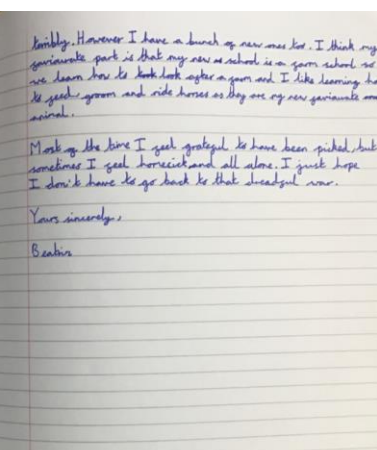 terribly. However I have a bunch of new ones too. I think my
faviourate part is that my new school is a farm school so
we learn how to look after a farm and I like learning ho
to feed groom and ride horses as they are my new faviourate
animal.
Most of the time I feel grateful to have been picked, but
sometimes I feel homesick and all alone. I just hope
I don't have to go back to that dreadful war.
Yours sincerely,
Beatrix